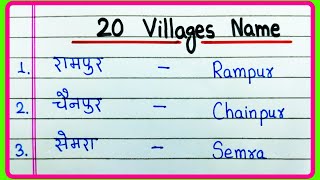 20 Villages Name
1. रामपुर - Rampur
2. चैनपुर - Chainpur
3. सेमरा - Semra